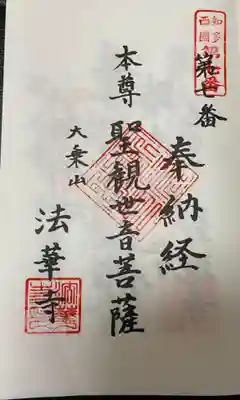 知多
西國
第七番
奉納経
本尊聖観世音菩薩
大乗山
法華寺